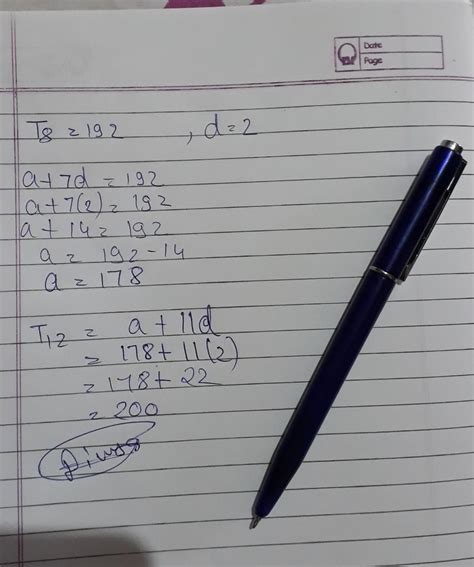 Date
Page
T8 = 192 , d = 2
a + 7d = 192
a + 7(2) = 192
a + 14 = 192
a = 192 - 14
a = 178
T12 = a + 11d
= 178 + 11(2)
= 178 + 22
= 200